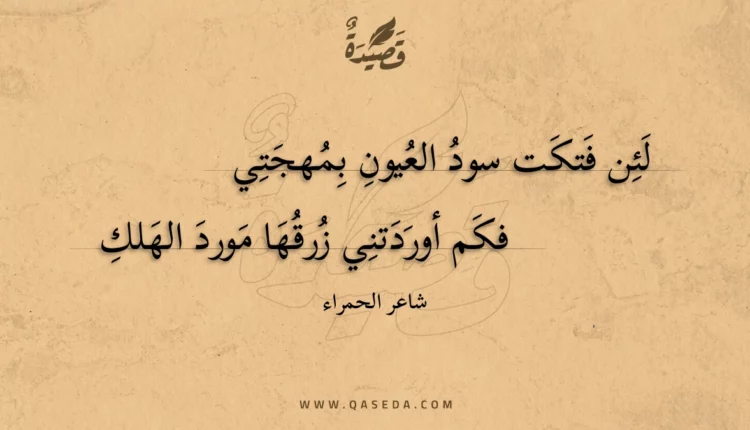 قَصِيْدَةٌ
لَئِن فَتكَت سودُ العُيونِ بِمُهجَتِي
فكَم أورَدَتنِي زُرقُهَا مَوردَ الهَلكِ
شاعر الحمراء
WWW.QASEDA.COM